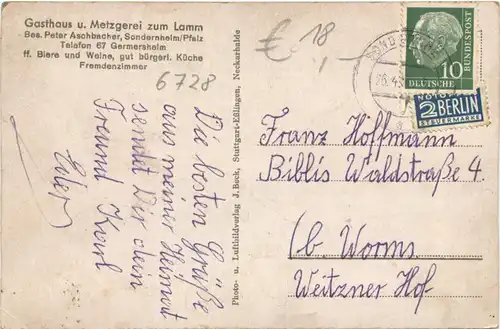 Gasthaus u. Metzgerei zum Lamm
Bes. Peter Aschbacher, Sondernheim/Pfalz
Telefon 67 Germersheim
ff. Biere und Weine, gut bürgerl. Küche
Fremdenzimmer
€ 18,-
6728
Die besten Grüße
aus meiner Heimat
sendet Dir dein
Freund Karl
Photo- u. Luftbildverlag J. Beck, Stuttgart-Eßlingen, Neckarhalde
10
DEUTSCHE
BUNDESPOST
2 BERLIN
STEUERMARKE
Franz Hoffmann
Biblis Waldstraße 4.
(b. Worms
Weitzner Hof